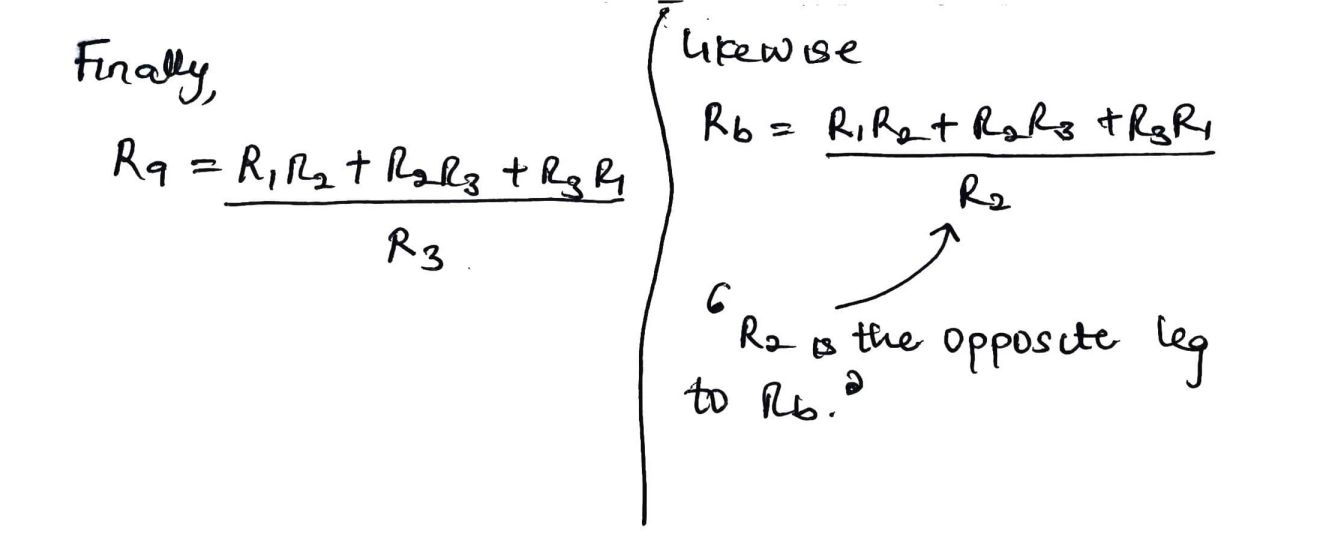 Finally,
Ra = R₁R₂ + R₂R₃ + R₃R₁
R₃
likewise
Rb = R₁R₂ + R₂R₃ + R₃R₁
R₂
‘R₂ is the opposite leg
to Rb.’